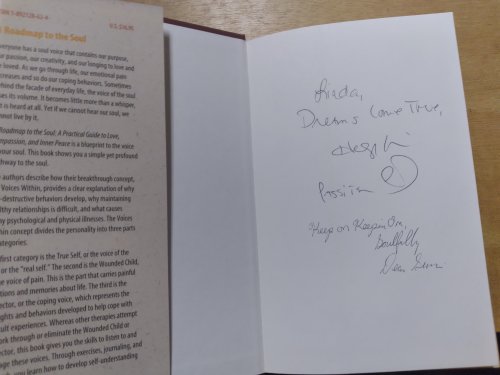 ISBN 1-892128-02-4
U.S. $14.95
Roadmap to the Soul
everyone has a soul voice that contains our purpose,
our passion, our creativity, and our longing to love and
be loved. As we go through life, our emotional pain
increases and so do our coping behaviors. Sometimes
behind the facade of everyday life, the voice of the soul
loses its volume. It becomes little more than a whisper,
it is heard at all. Yet if we cannot hear our soul, we
cannot live by it.
Roadmap to the Soul: A Practical Guide to Love,
Compassion, and Inner Peace is a blueprint to the voice
your soul. This book shows you a simple yet profound
pathway to the soul.
authors describe how their breakthrough concept,
Voices Within, provides a clear explanation of why
-destructive behaviors develop, why maintaining
healthy relationships is difficult, and what causes
many psychological and physical illnesses. The Voices
Within concept divides the personality into three parts
categories.
first category is the True Self, or the voice of the
or the "real self." The second is the Wounded Child,
voice of pain. This is the part that carries painful
emotions and memories about life. The third is the
ector, or the coping voice, which represents the
thoughts and behaviors developed to help cope with
difficult experiences. Whereas other therapies attempt
work through or eliminate the Wounded Child or
ector, this book gives you the skills to listen to and
age these voices. Through exercises, journaling, and
you learn how to develop self-understanding
Linda,
Dreams Come True,
Keep on Keepin On,
Soulfully